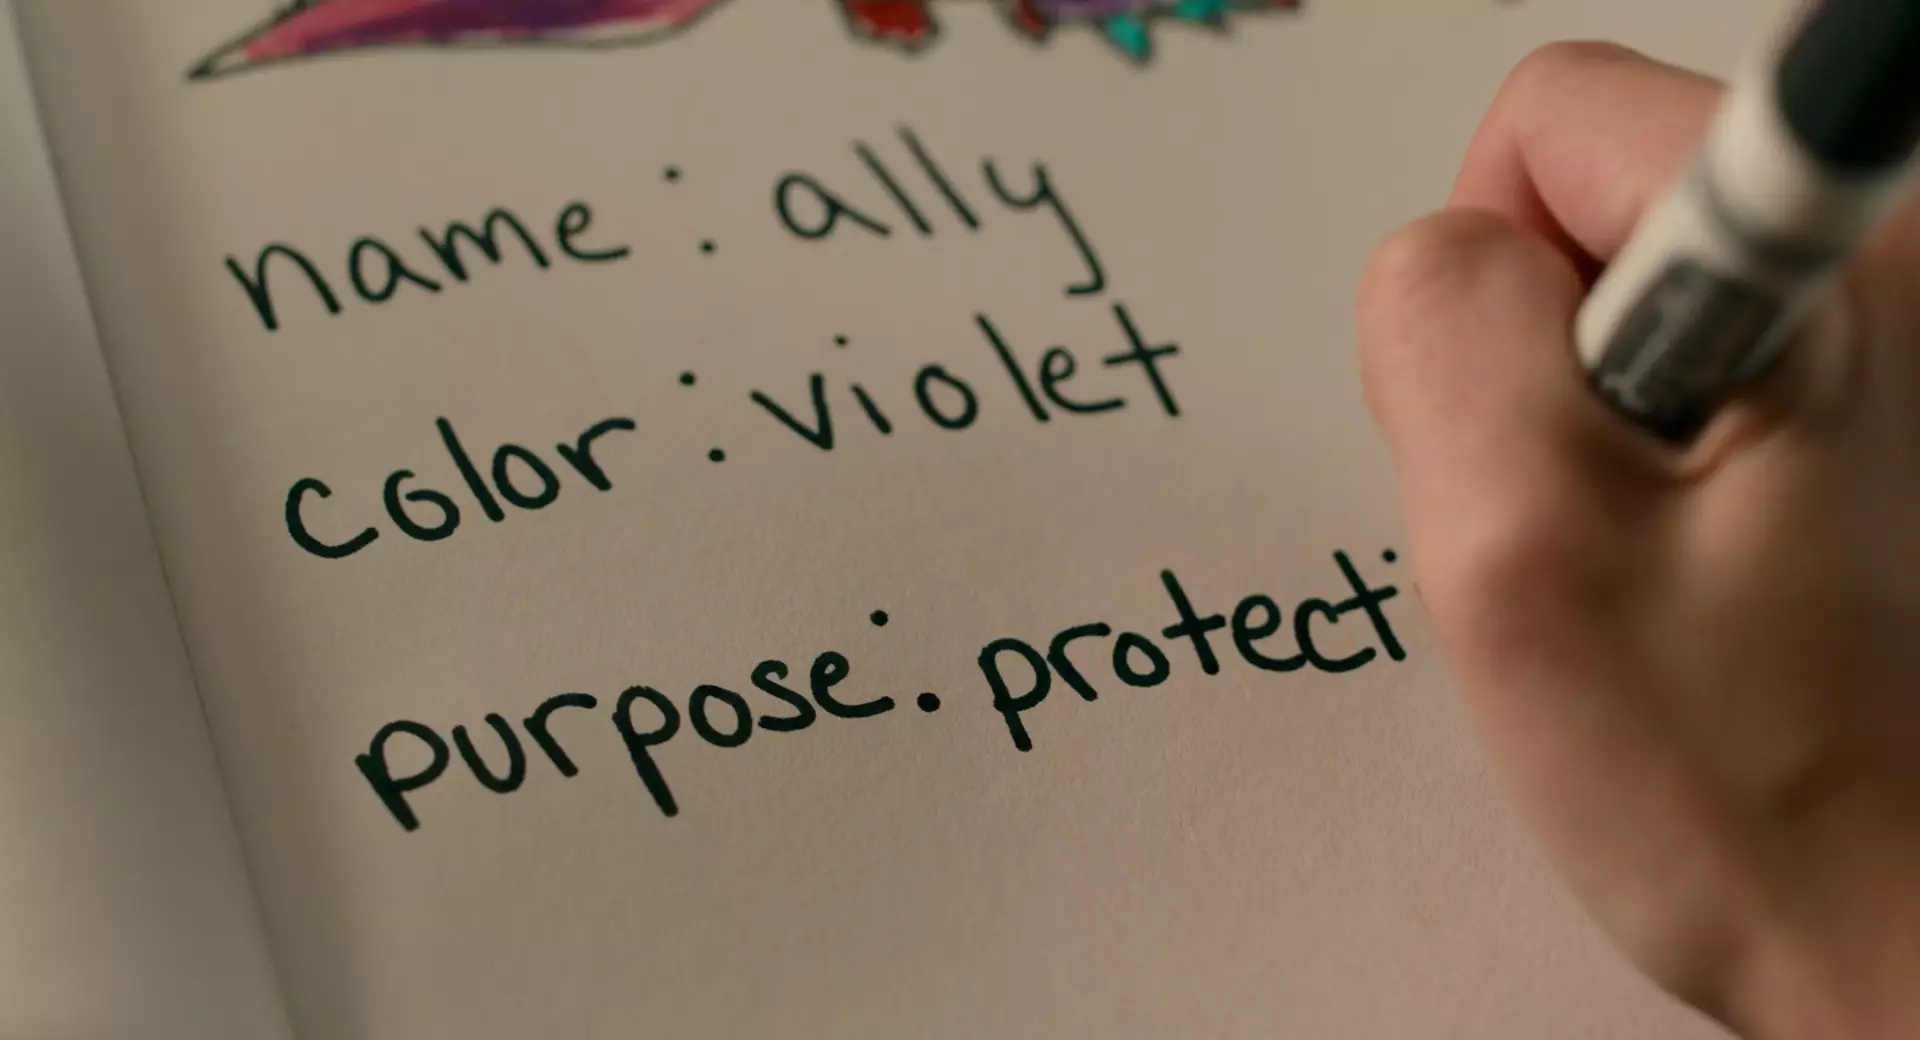 name: ally
color: violet
purpose: protecti